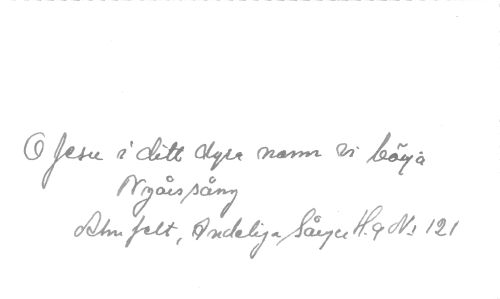 O Jesu i ditt dyra namn vi böija
Nyårssång
Ahnfelt, Andeliga Sånger H. 9 No 121